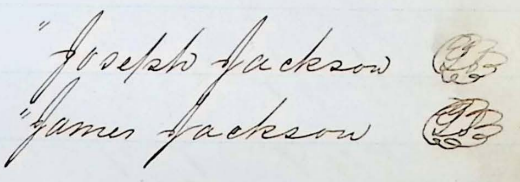 "Joseph Jackson
"James Jackson